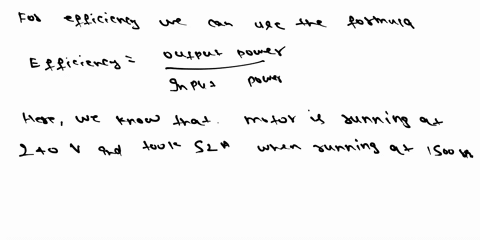 For efficiency we can use the formula
Efficiency = output power
Input power
Here, we know that motor is running at
240 V and took 52A when running at 1500